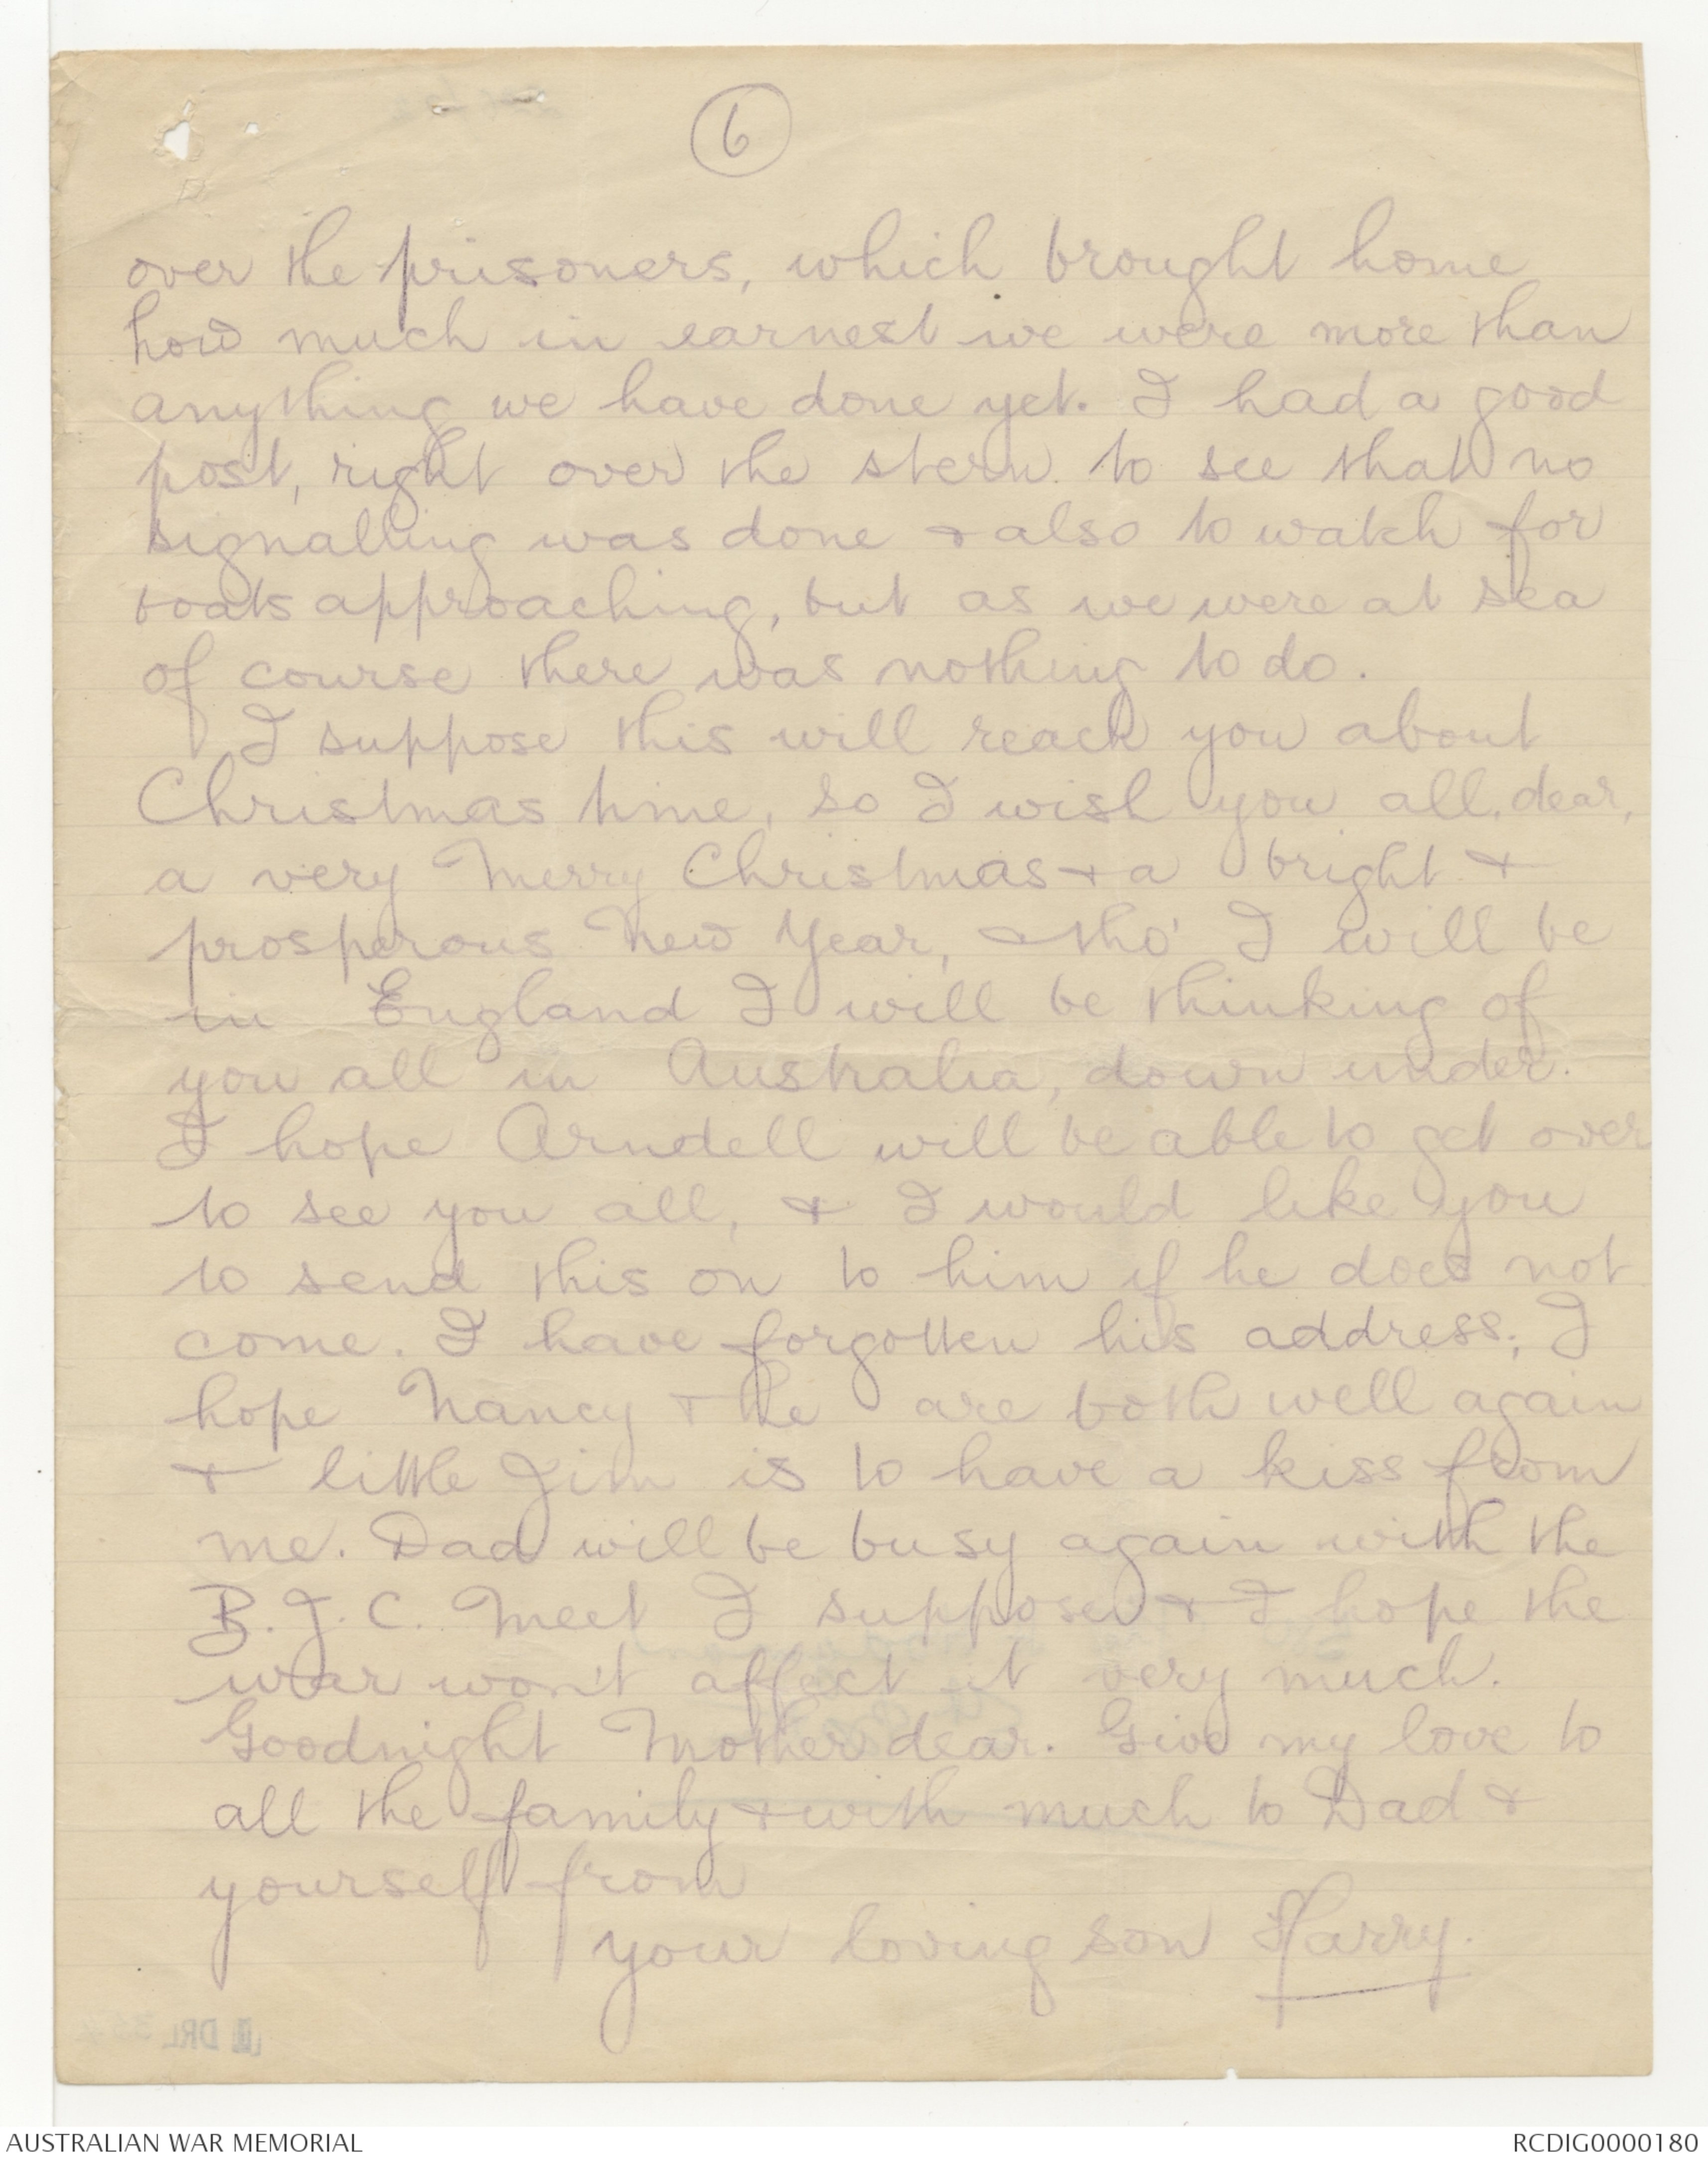 6
over the prisoners, which brought home
how much in earnest we were more than
anything we have done yet. I had a good
post, right over the stern to see that no
signalling was done & also to watch for
boats approaching, but as we were at sea
of course there was nothing to do.
I suppose this will reach you about
Christmas time, so I wish you all, dear,
a very Merry Christmas & a bright &
prosperous New Year, & tho' I will be
in England I will be thinking of
you all in Australia, down under.
I hope Arndell will be able to get over
to see you all, & I would like you
to send this on to him if he does not
come. I have forgotten his address; I
hope Nancy & he are both well again
& little Jim is to have a kiss from
me. Dad will be busy again with the
B.J.C. Meet I suppose & I hope the
war won't affect it very much.
Goodnight Mother dear. Give my love to
all the family & with much to Dad &
yourself from
your loving son Harry.
DRL
AUSTRALIAN WAR MEMORIAL
RCDIG0000180